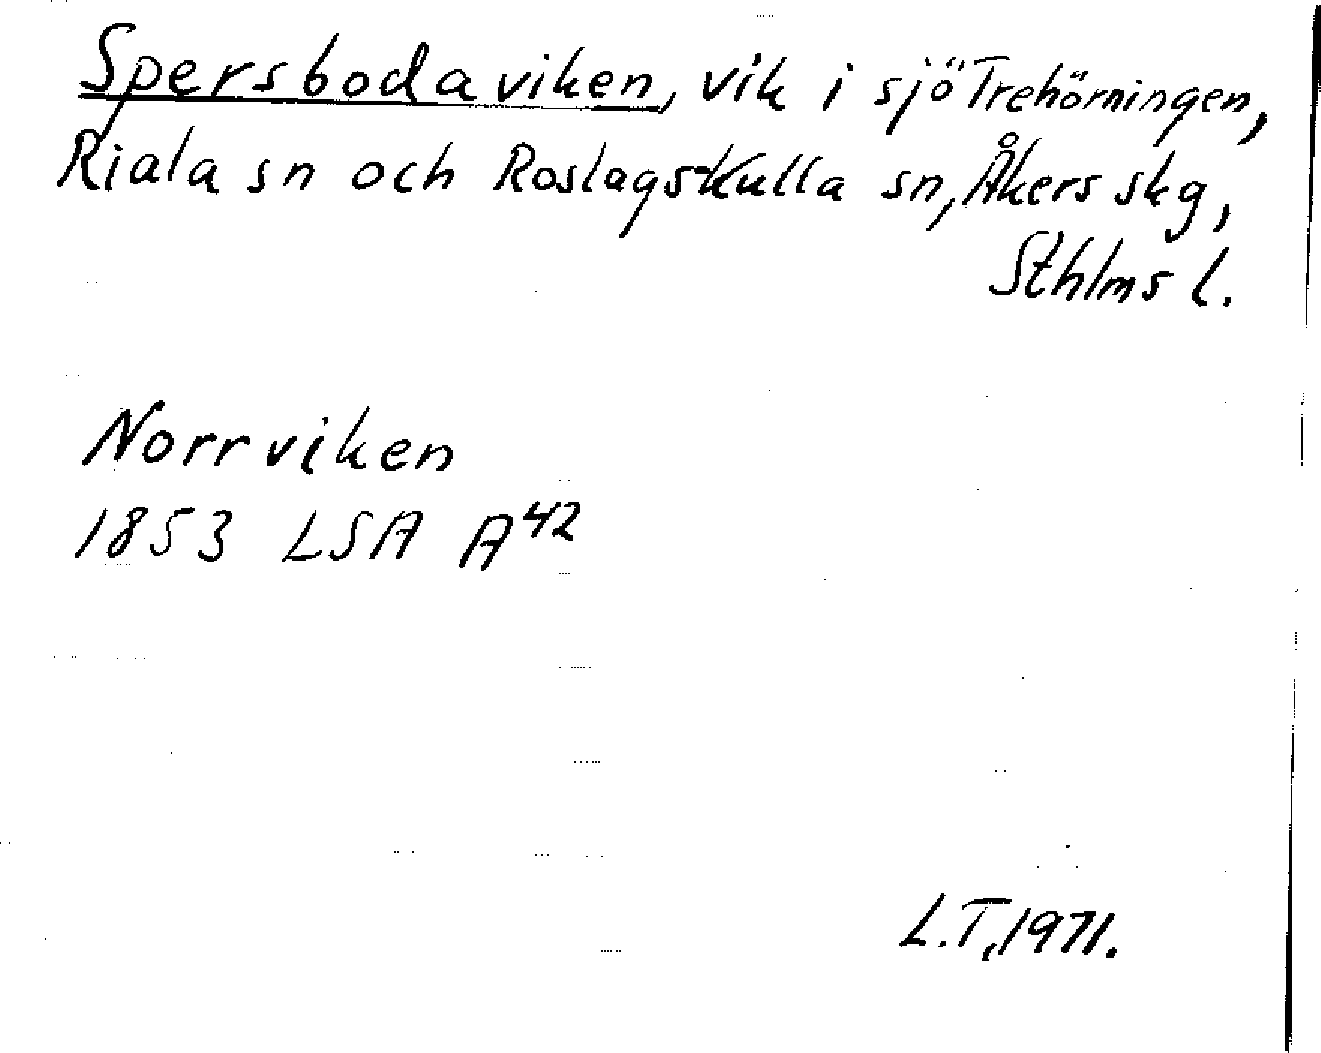 Spersbodaviken, vik i sjö Trehörningen,
Riala sn och Roslags-Kulla sn, Åkers skg,
Sthlms l.
Norrviken
1853 LSA A42
L.T, 1971.